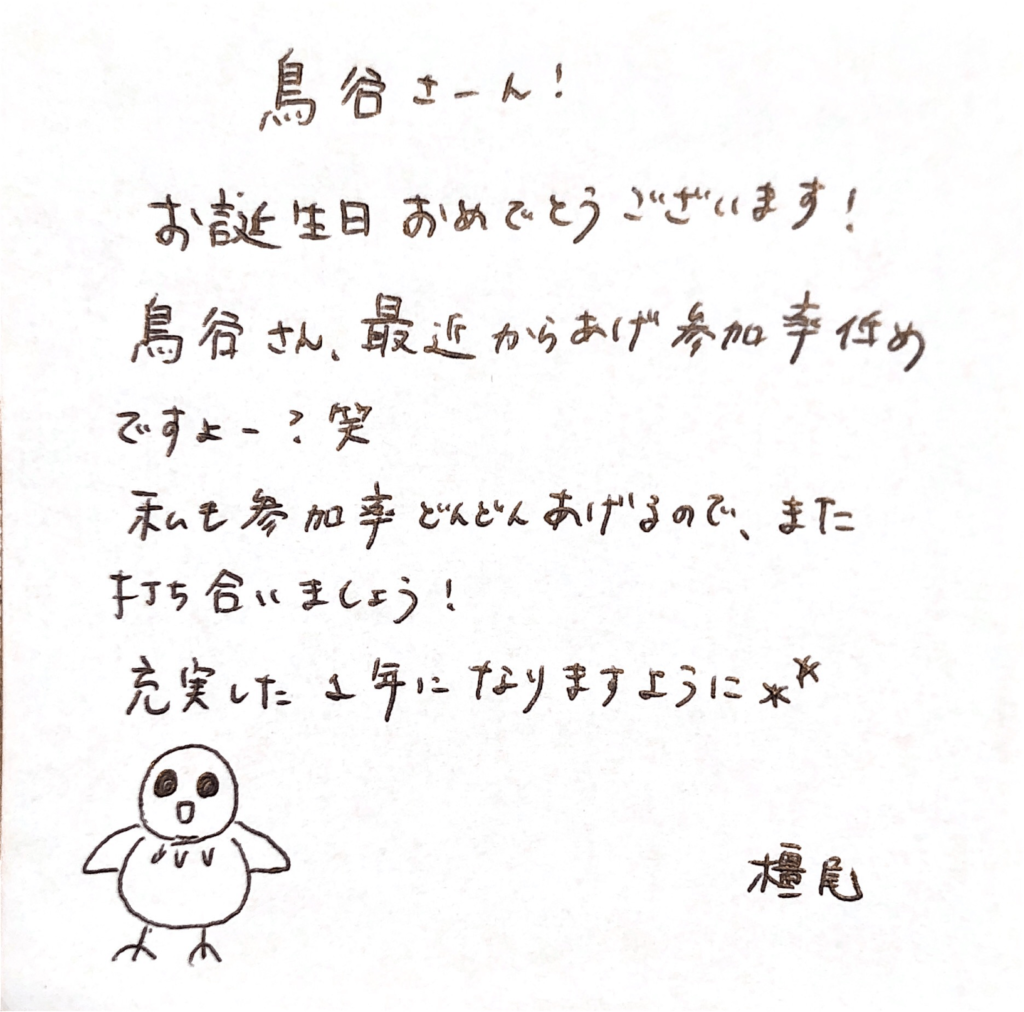 鳥谷さーん!
お誕生日おめでとうございます!
鳥谷さん、最近からあげ参加率低め
ですよー?笑
私も参加率どんどんあげるので、また
打ち合いましょう!
充実した1年になりますように**
橿尾